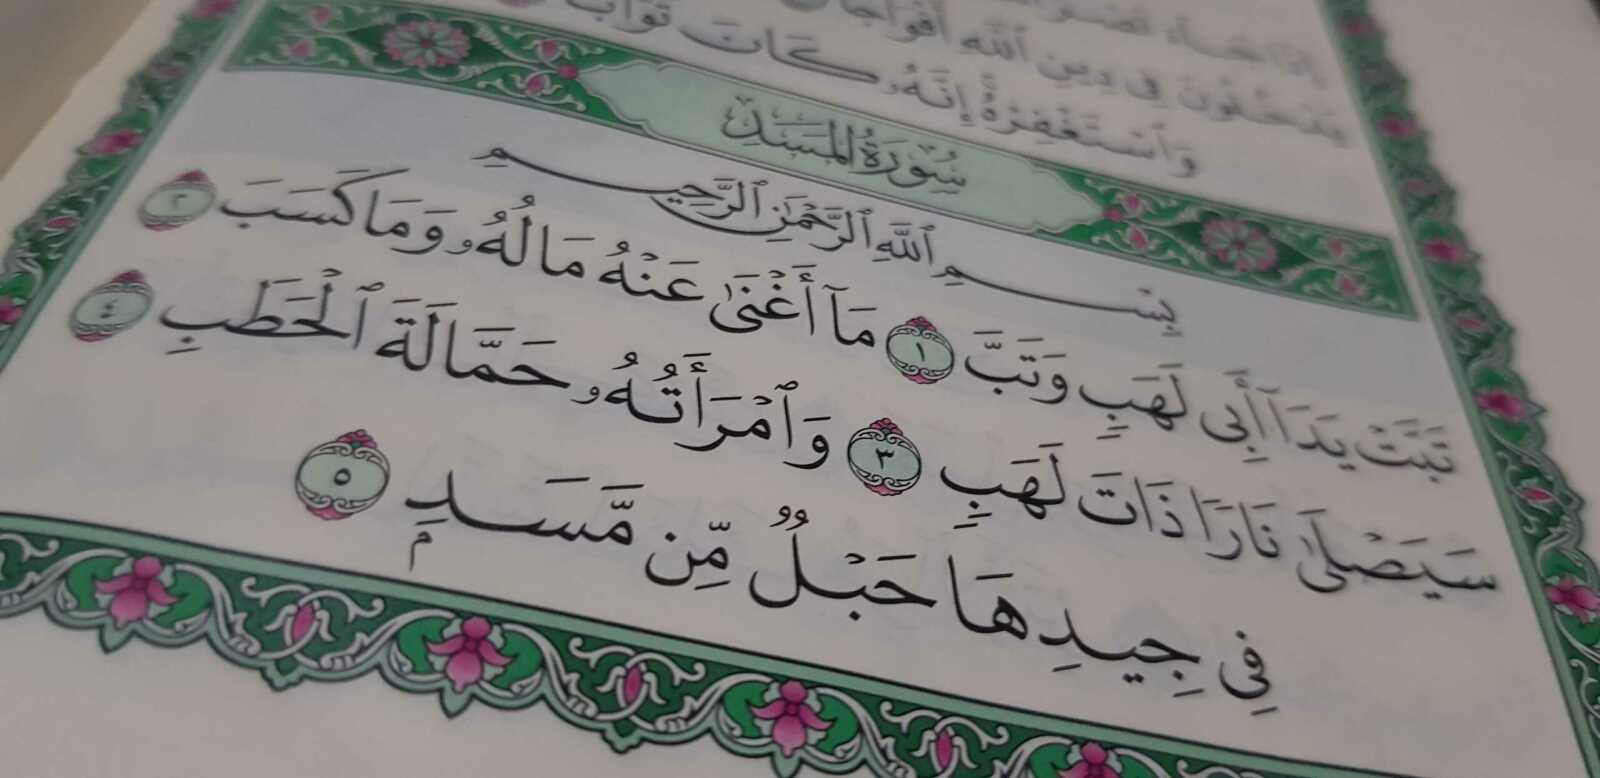 إِذَا جَآءَ نَصْرُ
يَدْخُلُونَ فِى دِينِ ٱللَّهِ أَفْوَاجًا
وَٱسْتَغْفِرْهُ إِنَّهُۥ كَانَ تَوَّابًۢا
سُورَةُ المَسَدِ
بِسْمِ ٱللَّهِ ٱلرَّحْمَٰنِ ٱلرَّحِيمِ
تَبَّتْ يَدَآ أَبِى لَهَبٍ وَتَبَّ ١ مَآ أَغْنَىٰ عَنْهُ مَالُهُۥ وَمَا كَسَبَ ٢
سَيَصْلَىٰ نَارًا ذَاتَ لَهَبٍ ٣ وَٱمْرَأَتُهُۥ حَمَّالَةَ ٱلْحَطَبِ ٤
فِى جِيدِهَا حَبْلٌ مِّن مَّسَدٍۭ ٥